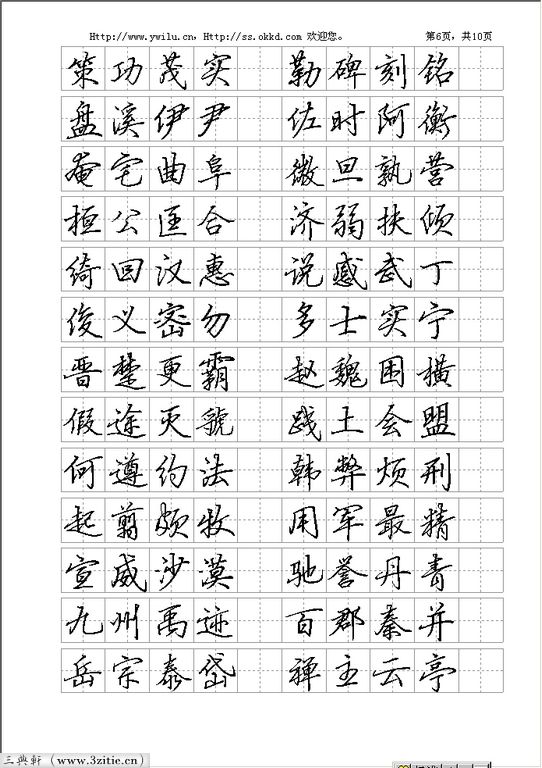 Http://www.ywilu.cn, Http://ss.okkd.com 欢迎您。 第6页，共10页
策功茂实 勒碑刻铭
盘溪伊尹 佐时阿衡
奄宅曲阜 微旦孰营
桓公匡合 济弱扶倾
绮回汉惠 说感武丁
俊义密勿 多士实宁
晋楚更霸 赵魏困横
假途灭虢 践土会盟
何遵约法 韩弊烦刑
起翦颇牧 用军最精
宣威沙漠 驰誉丹青
九州禹迹 百郡秦并
岳宗泰岱 禅主云亭
三典軒（www.3zitie.cn）